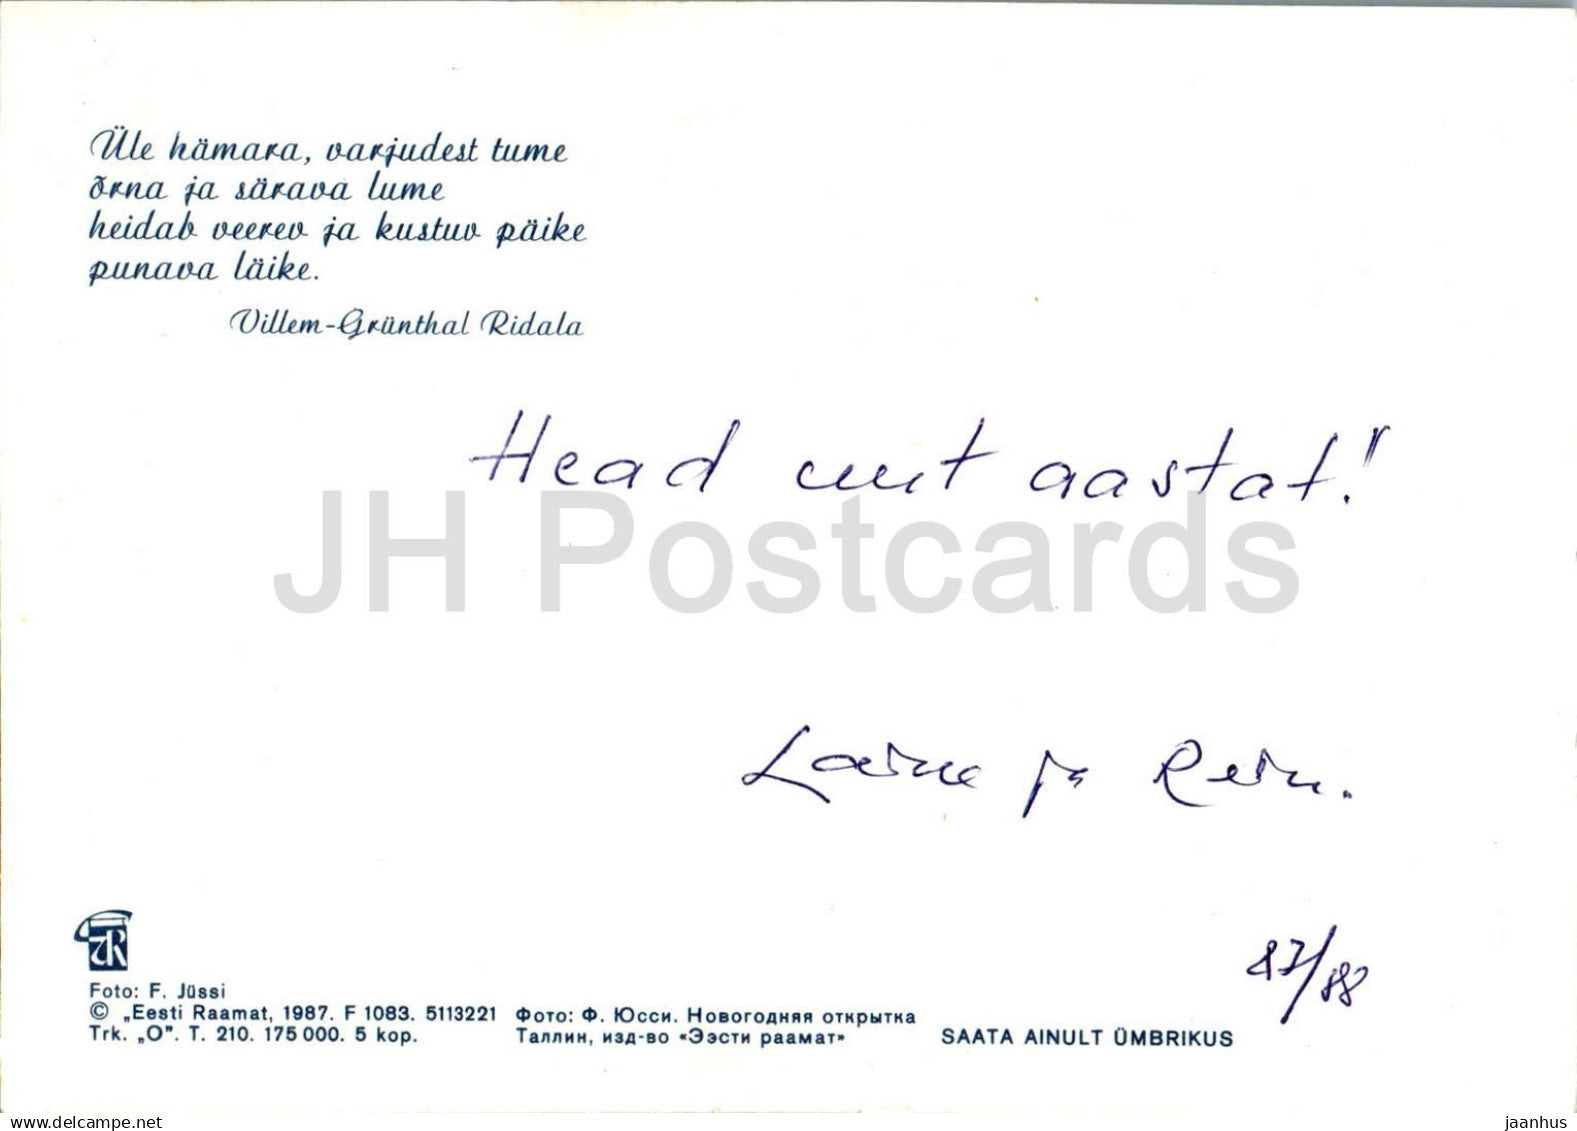 Üle hämara, varjudest tume
õrna ja särava lume
heidab veerev ja kustuv päike
punava läike.
Villem-Grünthal Ridala
Head uut aastat!
JH Postcards
Laine ja Rein.
87/88
ER
Foto: F. Jüssi
© „Eesti Raamat, 1987. F 1083. 5113221
Trk. „O". T. 210. 175 000. 5 kop.
Фото: Ф. Юсси. Новогодняя открытка
Таллин, изд-во «Ээсти раамат»
SAATA AINULT ÜMBRIKUS
www.delcampe.net
jaanhus